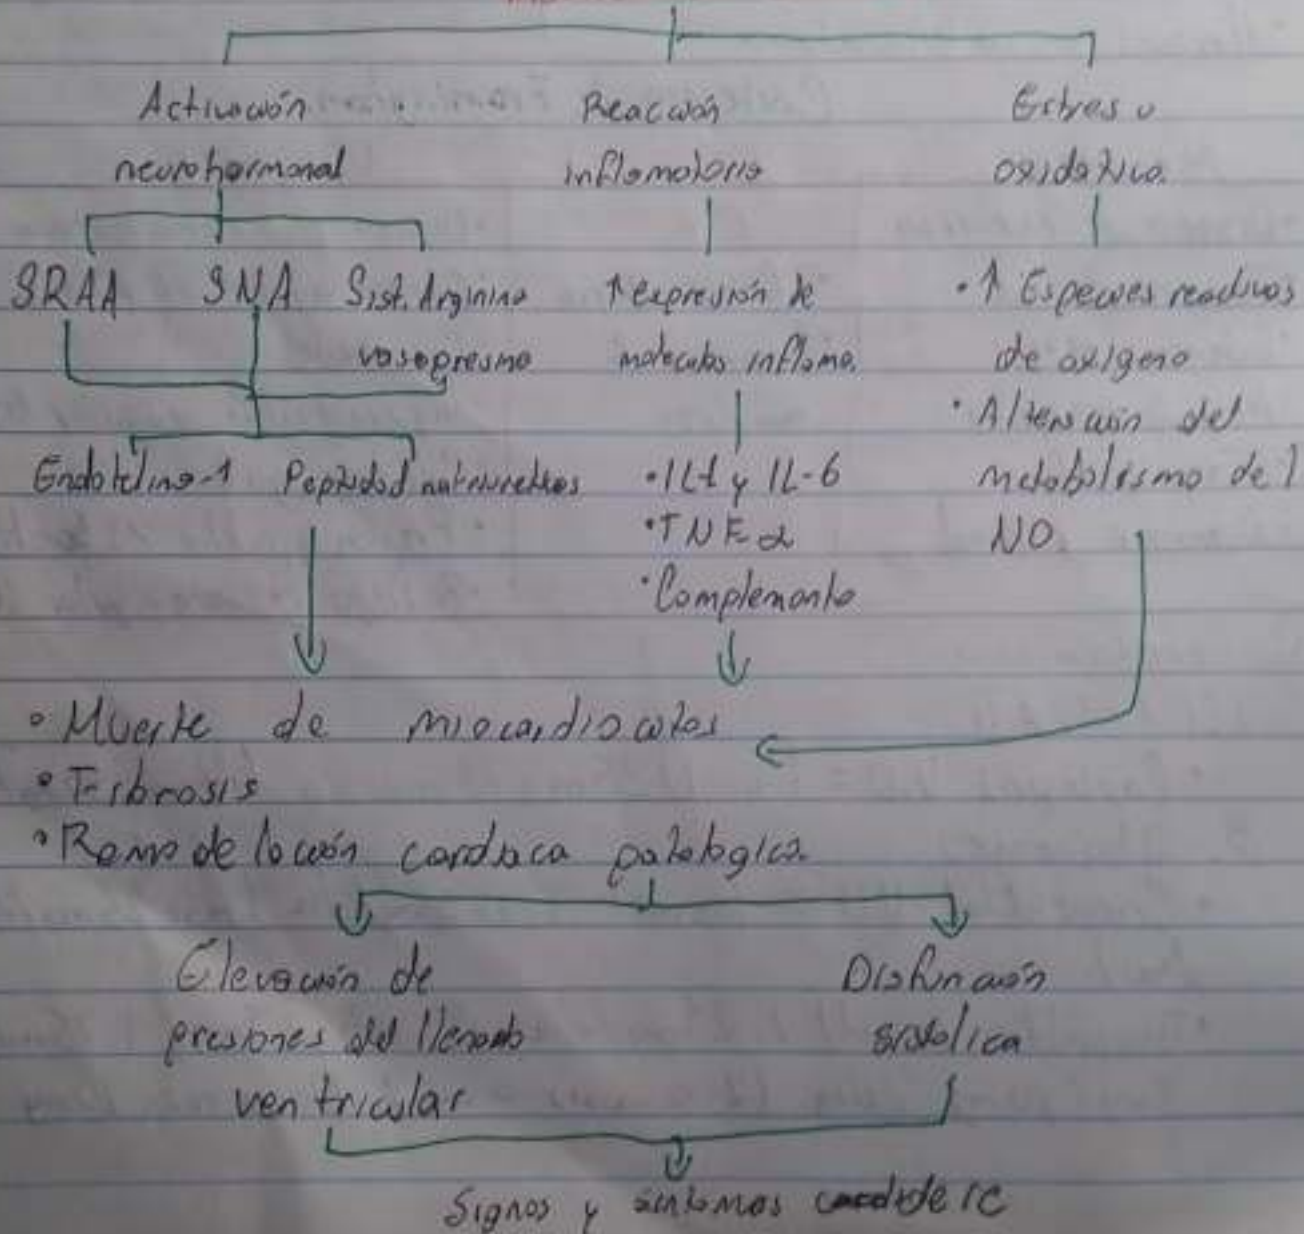 Activación
neurohormonal
Reacción
inflamatoria
Estres
oxidativo.
SRAA
SNA
Sist. Arginina
vasopresina
↑ expresión de
moleculas inflama.
• ↑ Especies reactivas
de oxigeno
• Alteración del
metabolismo del
NO
Endotelina-1
Peptidos natriureticos
• IL1 y IL-6
• TNF-α
• Complemento
• Muerte de miocardiocitos
• Fibrosis
• Remodelación cardiaca patologica.
Elevación de
presiones del llenado
ventricular
Disfunción
sistólica
Signos y sintomas de IC